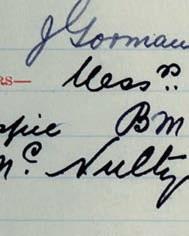 J Gorman
RS—
Messrs
spie BM
Mc Nulty